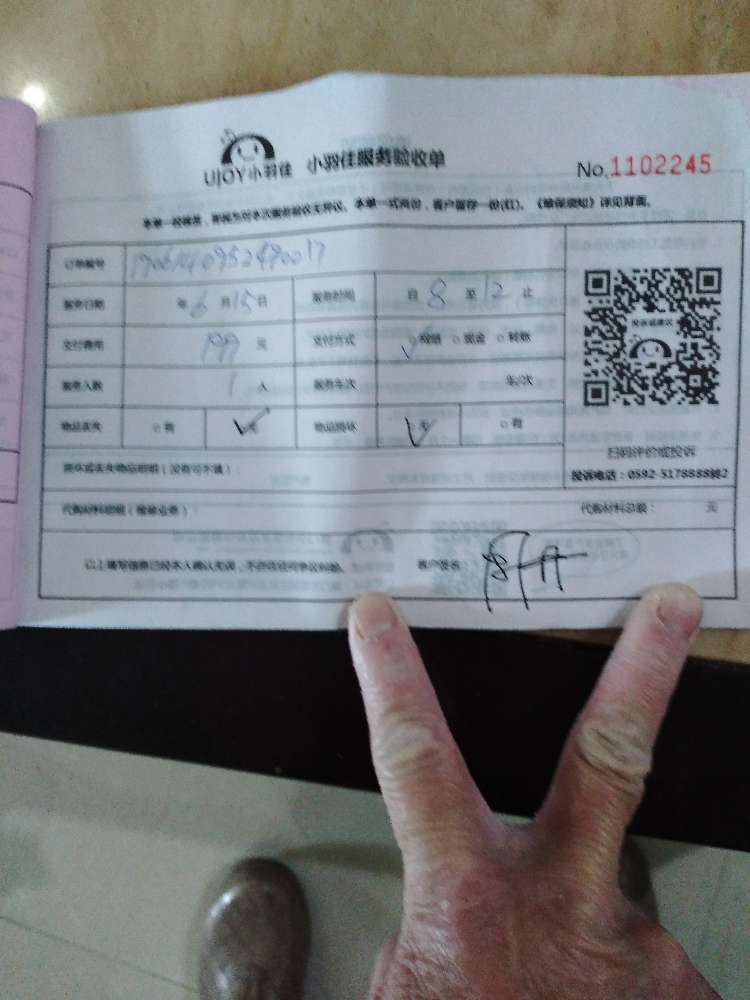 UJOY小羽佳 小羽佳服务验收单
No.1102245
本单一经确签，即视为对本次服务验收无异议。本单一式两份，客户留存一份(红)。《维保须知》详见背面。
订单编号
服务日期 年6月15日 服务时间 自8至12止
交付费用 199元 交付方式 ✓网络 ○现金 ○转账
服务人数 1人 服务车次 车/次
物品丢失 ○有 ✓无 物品损坏 ✓无 ○有
投诉或建议
扫码评价或投诉
投诉电话：0592-5178888转2
损坏或丢失物品明细（没有可不填）：
代购材料明细（维修业务）： 代购材料总额： 元
以上填写信息已经本人确认无误，不存在任何争议纠纷。 客户签名：